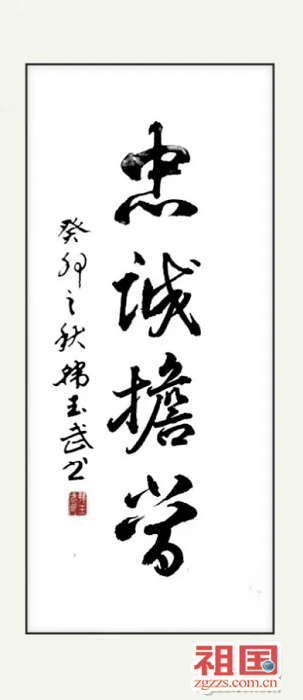 忠诚擔當
癸卯之秋韩玉武书
祖国
zgzzs.com.cn